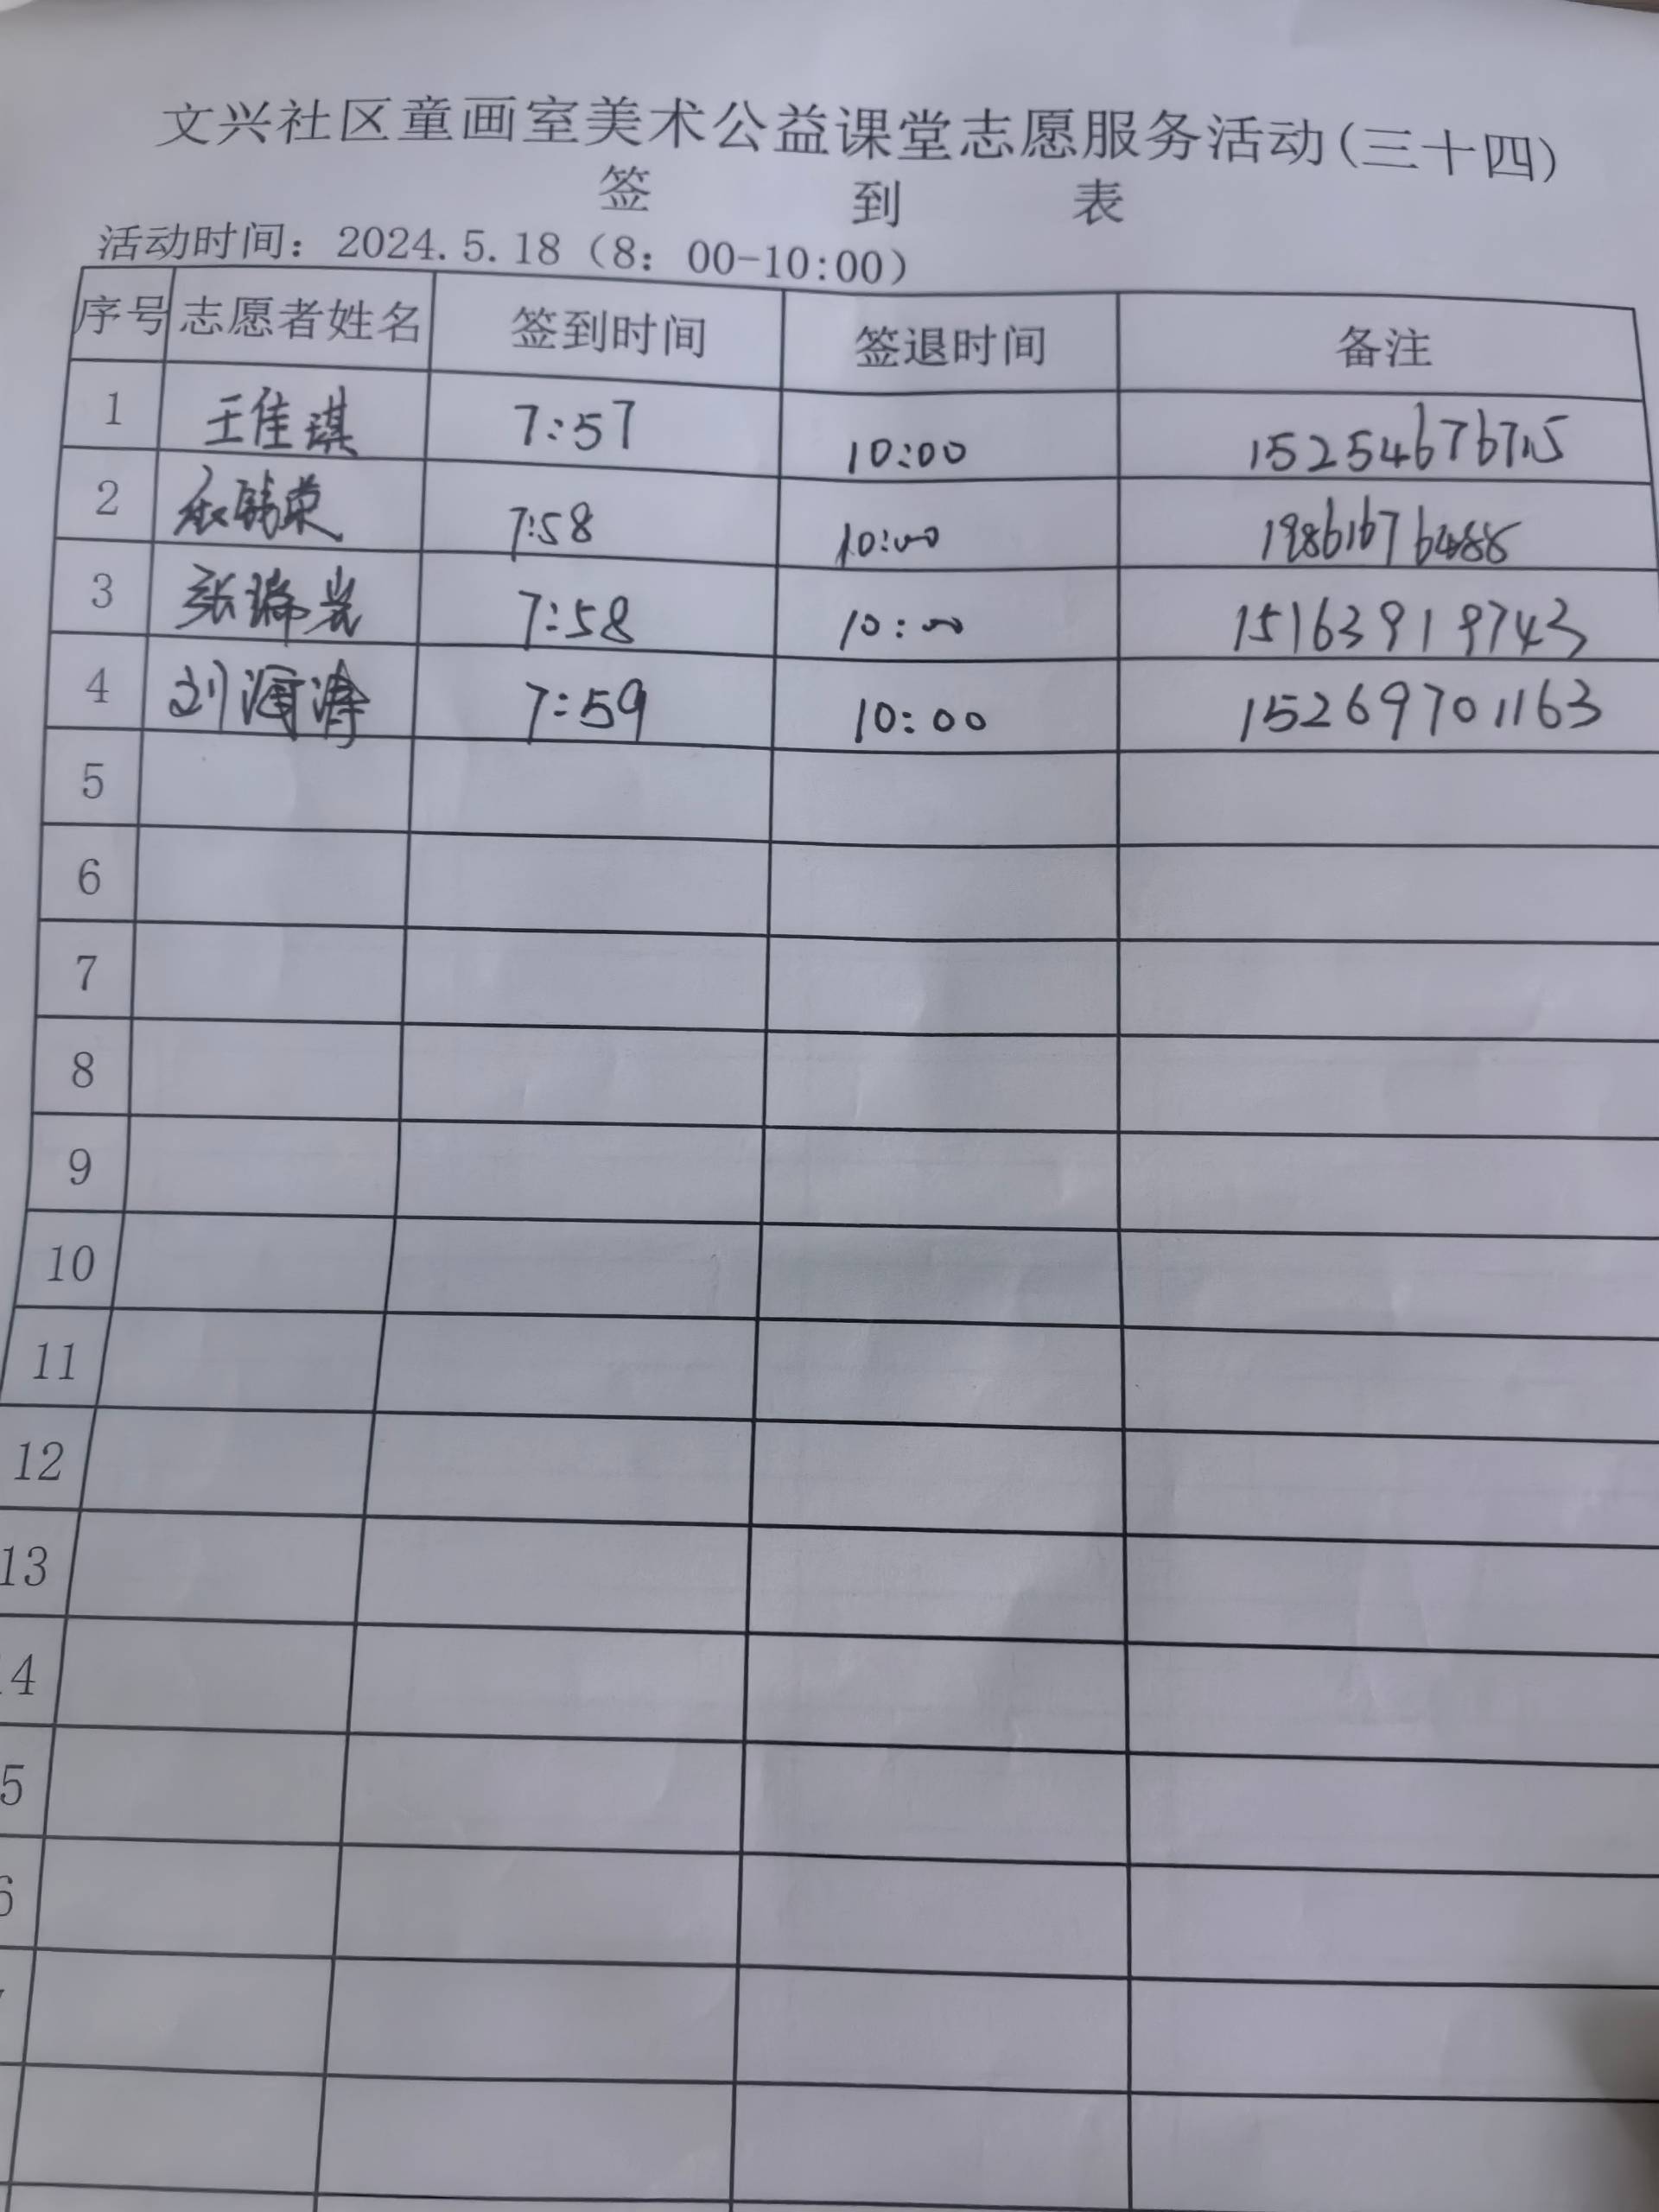 文兴社区童画室美术公益课堂志愿服务活动(三十四)
签 到 表
活动时间：2024.5.18（8：00-10:00）
序号 志愿者姓名 签到时间 签退时间 备注
1 王佳琪 7:57 10:00
2 7:58 10:00
3 张瑞岩 7:58 10:00 15163919743
4 刘润涛 7:59 10:00 15269701163
5
6
7
8
9
10
11
12
13
4
5
6